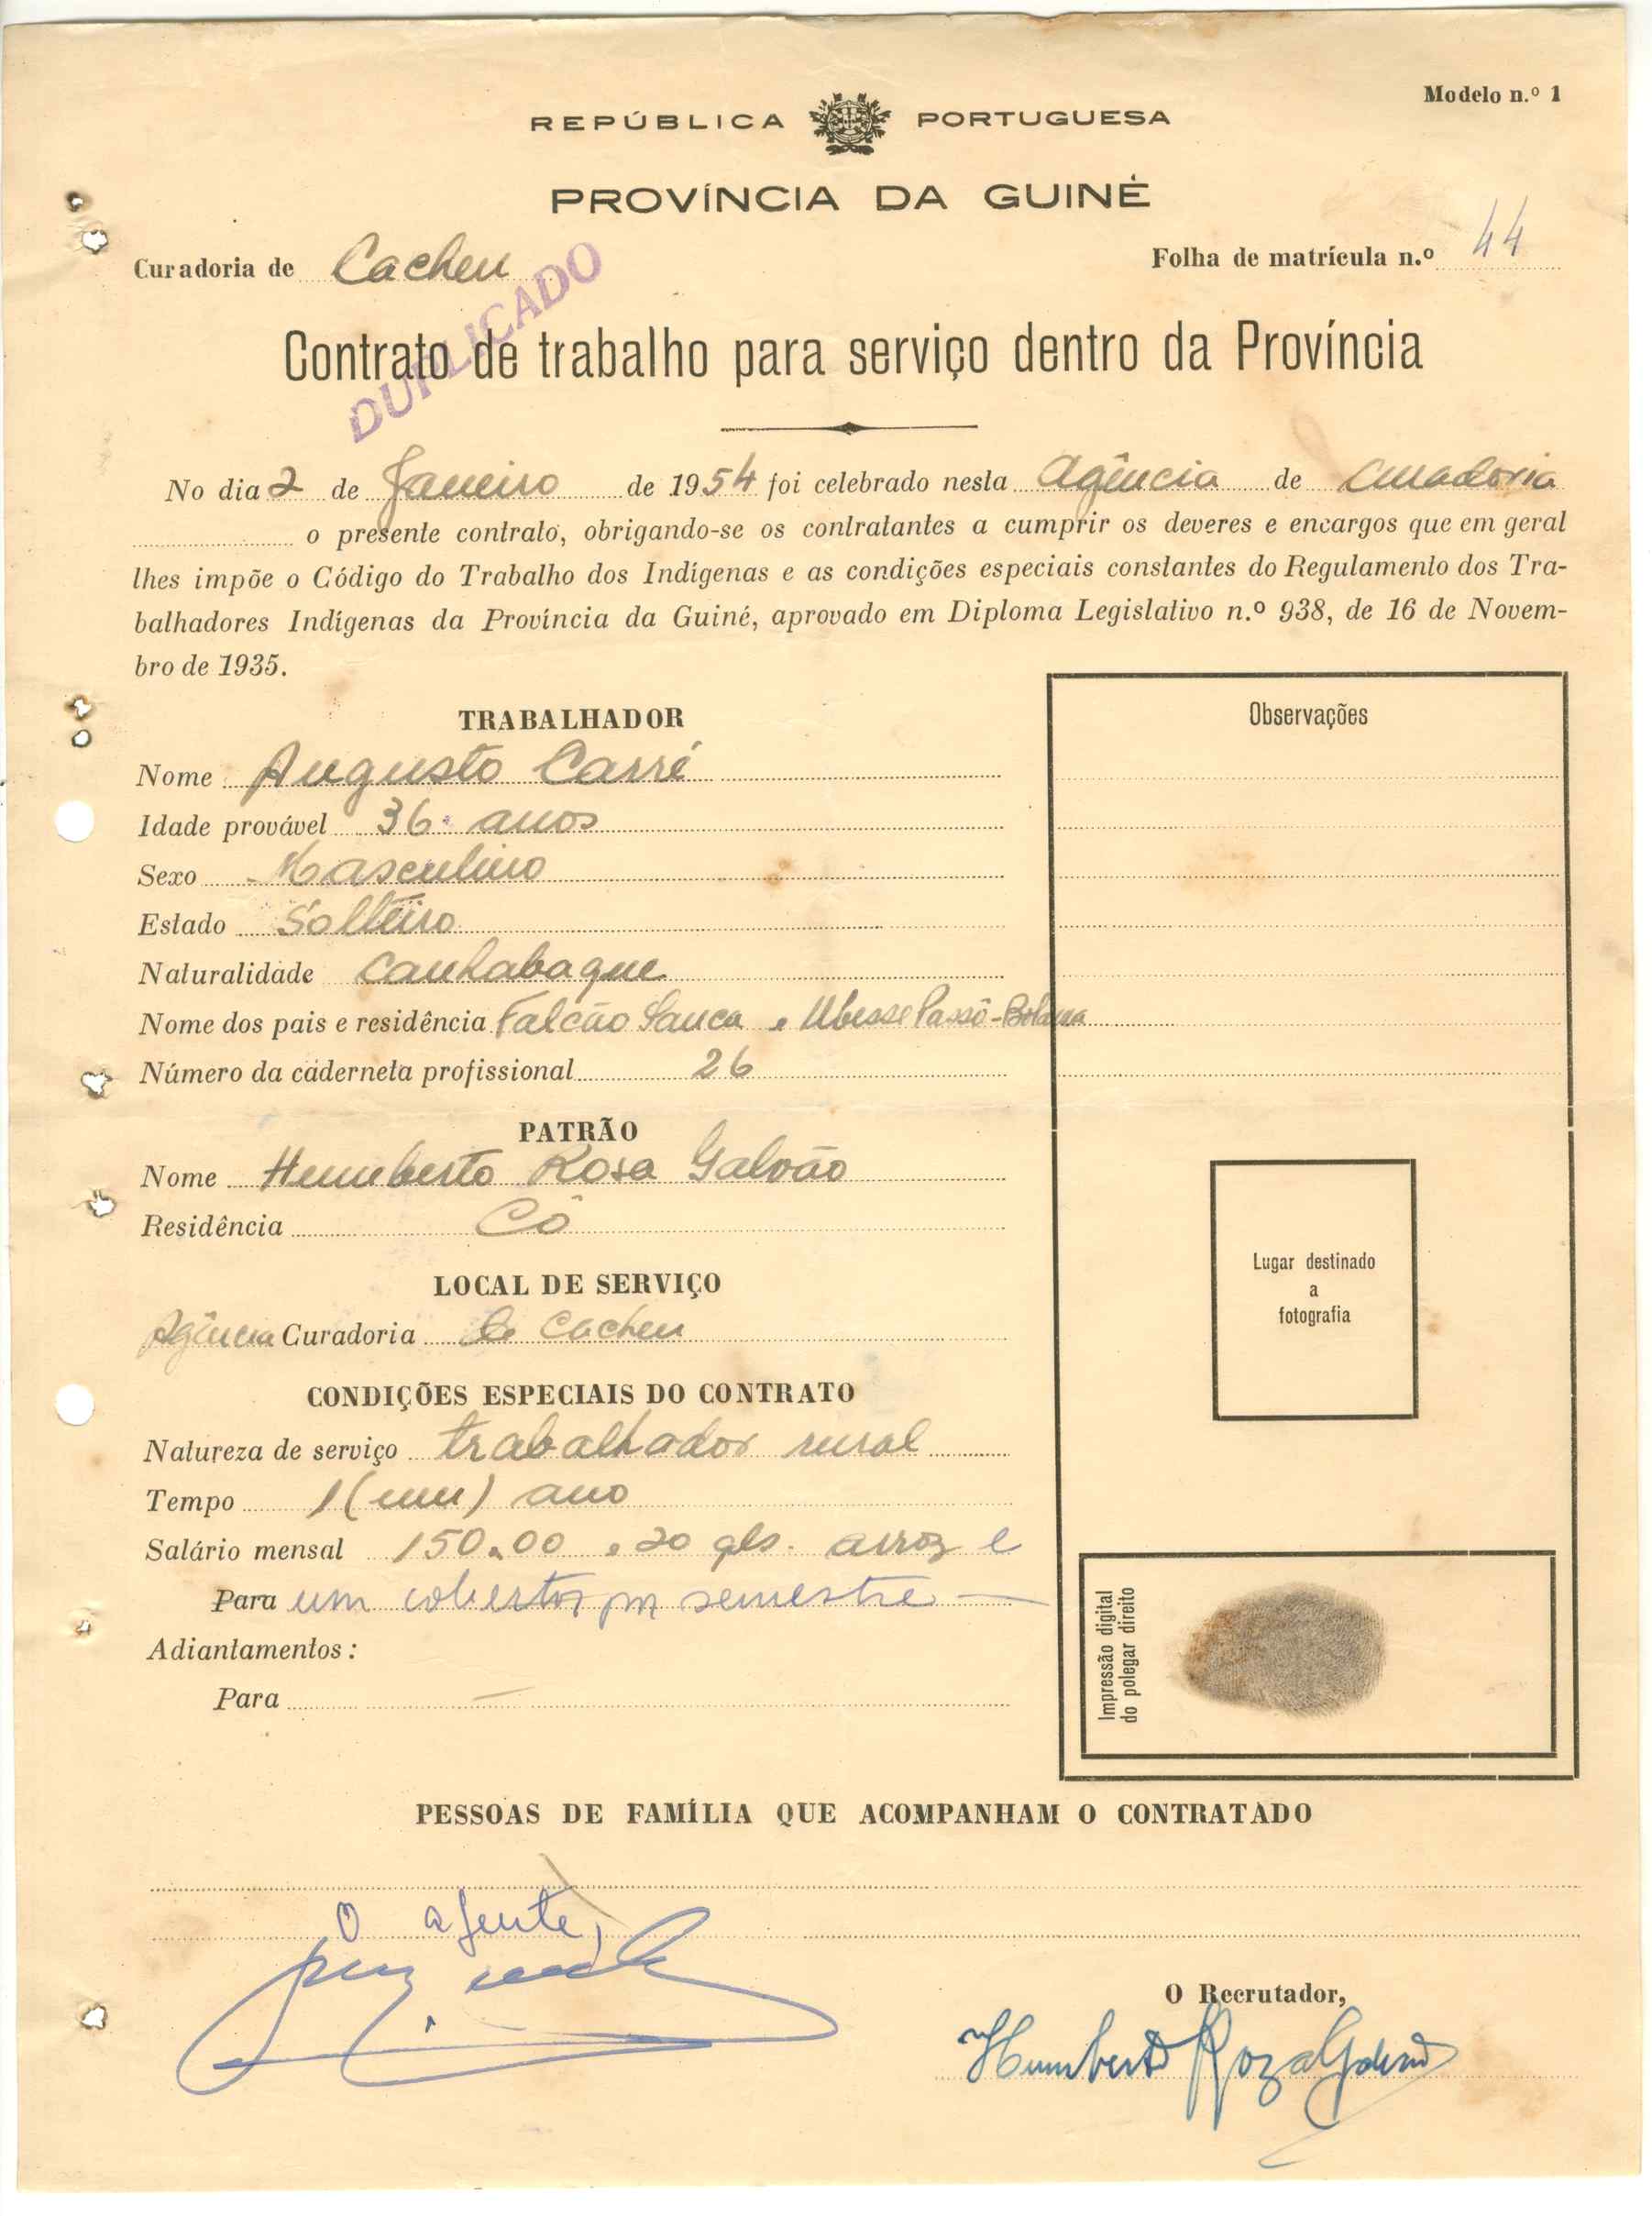 Modelo n.º 1
REPÚBLICA PORTUGUESA
PROVÍNCIA DA GUINÉ
Curadoria de Cacheu
Folha de matrícula n.º 44
DUPLICADO
Contrato de trabalho para serviço dentro da Província
No dia 2 de Janeiro de 1954 foi celebrado nesta Agência de Curadoria
o presente contrato, obrigando-se os contratantes a cumprir os deveres e encargos que em geral
lhes impõe o Código do Trabalho dos Indígenas e as condições especiais constantes do Regulamento dos Tra-
balhadores Indígenas da Província da Guiné, aprovado em Diploma Legislativo n.º 938, de 16 de Novem-
bro de 1935.
TRABALHADOR
Nome Augusto Carré
Idade provável 36 anos
Sexo Masculino
Estado Solteiro
Naturalidade Canhabaque
Nome dos pais e residência Falcão Sanca e Ubesse Passô-Bolama
Número da caderneta profissional 26
Observações
PATRÃO
Nome Humberto Rosa Galvão
Residência Có
LOCAL DE SERVIÇO
Agência Curadoria de Cacheu
Lugar destinado
a
fotografia
CONDIÇÕES ESPECIAIS DO CONTRATO
Natureza de serviço trabalhador rural
Tempo 1 (um) ano
Salário mensal 150.00 e 20 qls. arroz e
Para um cobertor por semestre —
Adiantamentos:
Para —
Impressão digital
do polegar direito
PESSOAS DE FAMÍLIA QUE ACOMPANHAM O CONTRATADO
O agente,
O Recrutador,
Humberto Roza Galvão